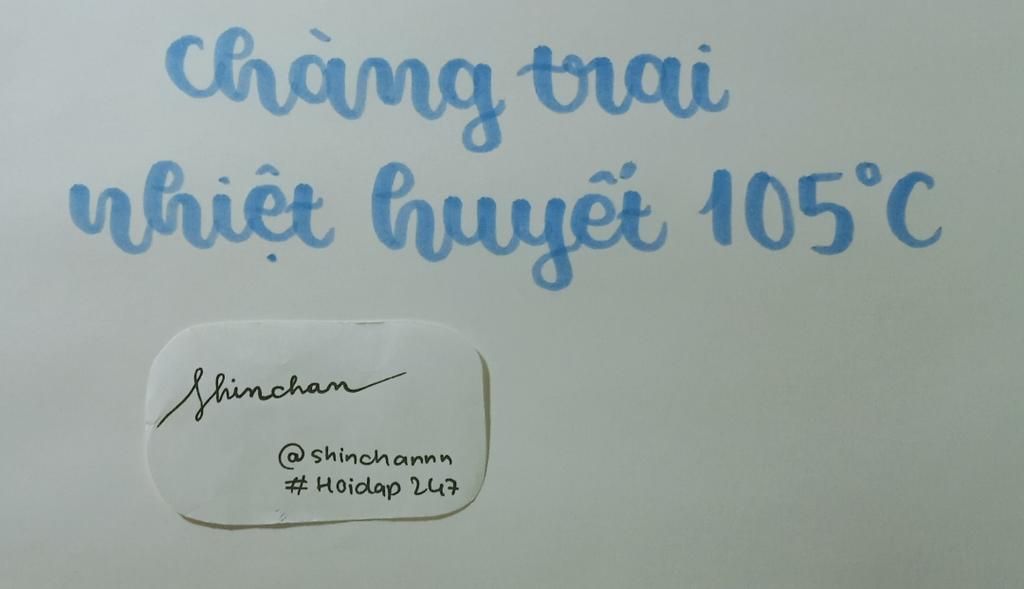 chàng trai
nhiệt huyết 105°C
Shinchan
@shinchannn
# Hoidap 247